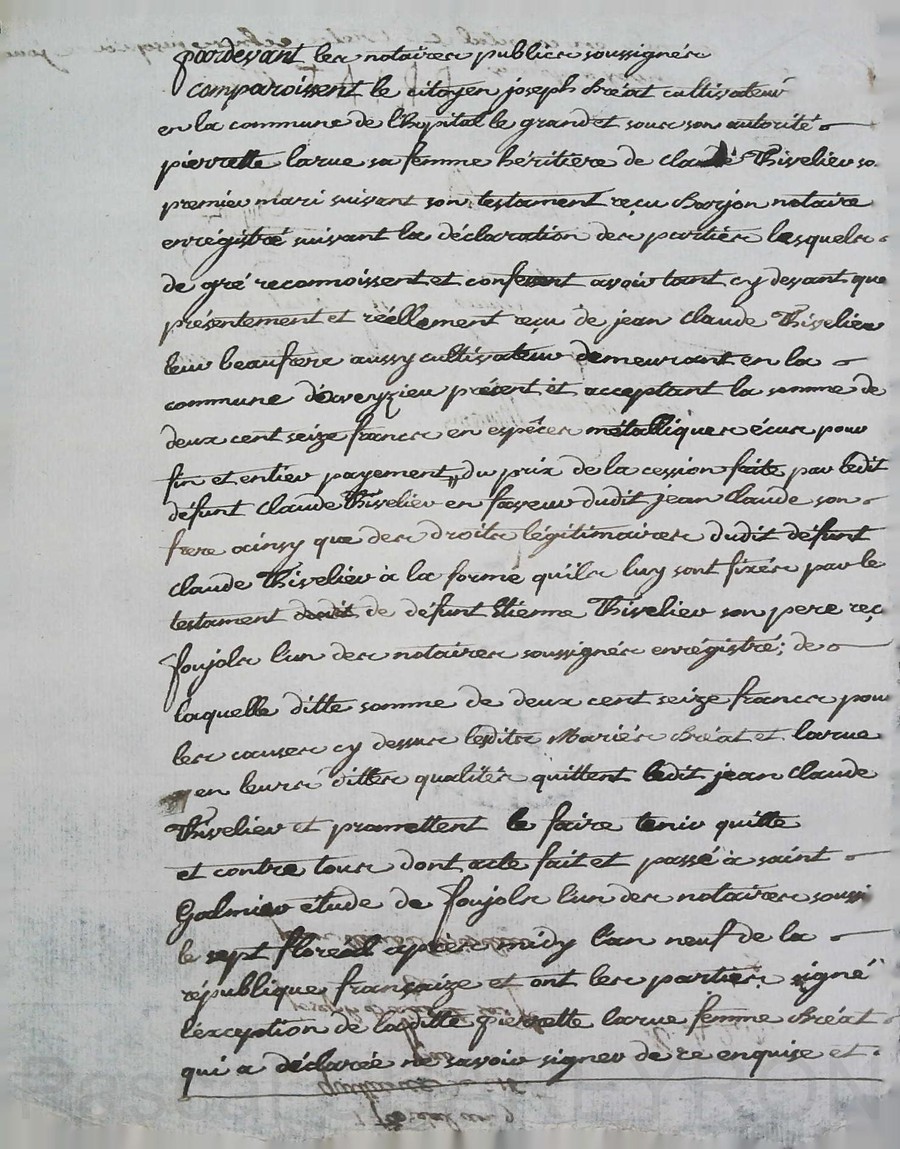 pardevant les notaires publics soussignés
comparoissent le citoyen joseph Bréat cultivateur
en la commune de l'hopital le grand et sous son autorité
pierrette larue sa femme héritière de claude Thivelier so
premier mari suivant son testament reçu Barjon notaire
enrégistré suivant la déclaration des parties lesquels
de gré reconnoissent et confessent avoir tant cy devant que
présentement et réellement reçu de jean claude Thivelier
leur beaufrere aussy cultivateur demeurant en la
commune d'aveyzieu présent et acceptant la somme de
deux cent seize francs en espêces métalliques écus pour
fin et entier payement du prix de la cession faite par ledit
défunt claude Thivelier en faveur dudit jean claude son
frere ainsy que des droits légitimaires dudit défunt
claude Thivelier à la forme quils luy sont fixés par le
testament de défunt Etienne Thivelier son pere reç
foujols l'un des notaires soussignés enrégistré; de
laquelle ditte somme de deux cent seize francs pour
les causes cy dessus lesdits Mariés Bréat et larue
en leurs dittes qualités quittent ledit jean claude
Thivelier et promettent le faire tenir quitte
et contre tous dont acte fait et passé à saint
Galmier étude de foujols l'un des notaires soussi
le sept floréal après midy l'an neuf de la
république françaize et ont les parties signé
l'éxception de laditte pierrette larue femme Bréat
qui a déclarée ne savoir signer de ce enquise et